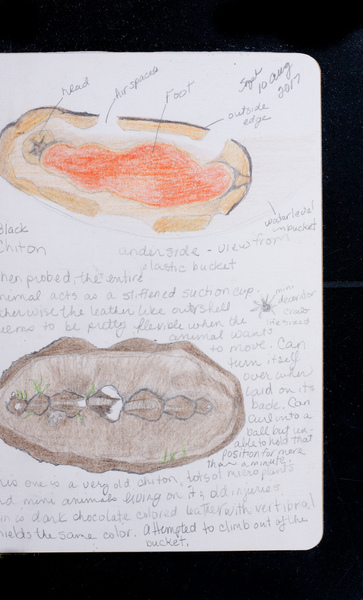 head
air spaces
Foot
10 aug
2017
outside
edge
water level
in bucket
Black
Chiton
underside - view from
plastic bucket
hen probed, the entire
nimal acts as a stiffened suction cup.
therwise the leather like outershell
eems to be pretty flexible when the
animal wants
mini
decorator
crab
to move. Can
turn itself
over when
laid on its
back. Can
curl into a
ball but un-
able to hold that
position for more
than a minute.
his one is a very old chiton, lots of micro plants
nd mini animals living on its old injuries.
in is dark chocolate colored leather with vertibral
hields the same color. Attempted to climb out of the
bucket.